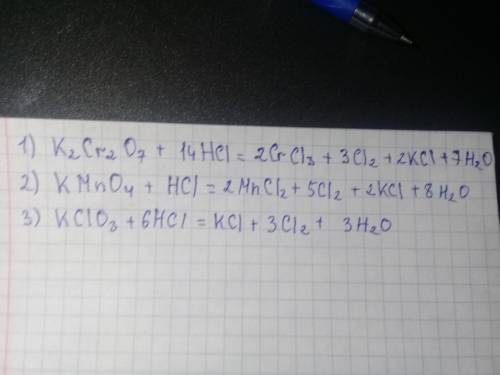 1) K₂Cr₂O₇ + 14HCl = 2CrCl₃ + 3Cl₂ + 2KCl + 7H₂O
2) KMnO₄ + HCl = 2MnCl₂ + 5Cl₂ + 2KCl + 8H₂O
3) KClO₃ + 6HCl = KCl + 3Cl₂ + 3H₂O